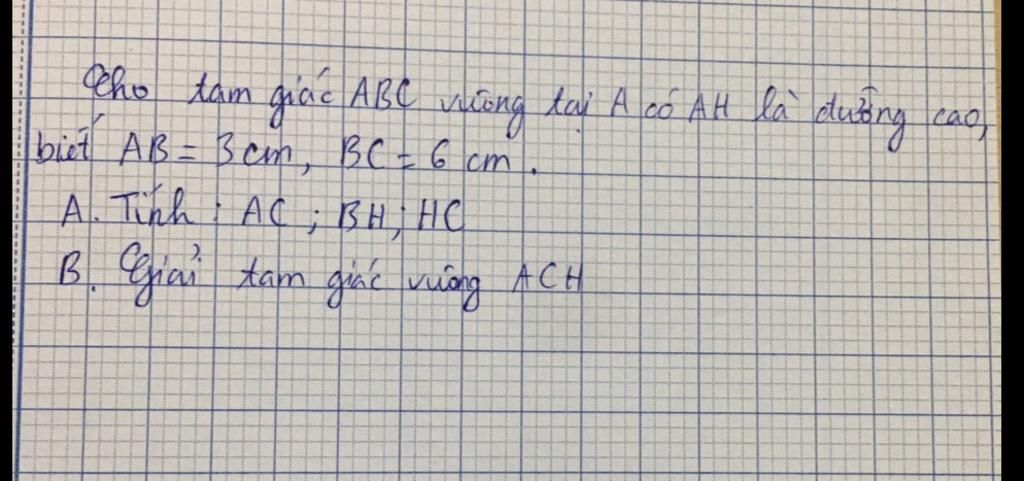 Cho tam giác ABC vuông tại A có AH là đường cao,
biết AB = 3 cm, BC = 6 cm.
A. Tính : AC ; BH ; HC
B. Giải tam giác vuông ACH